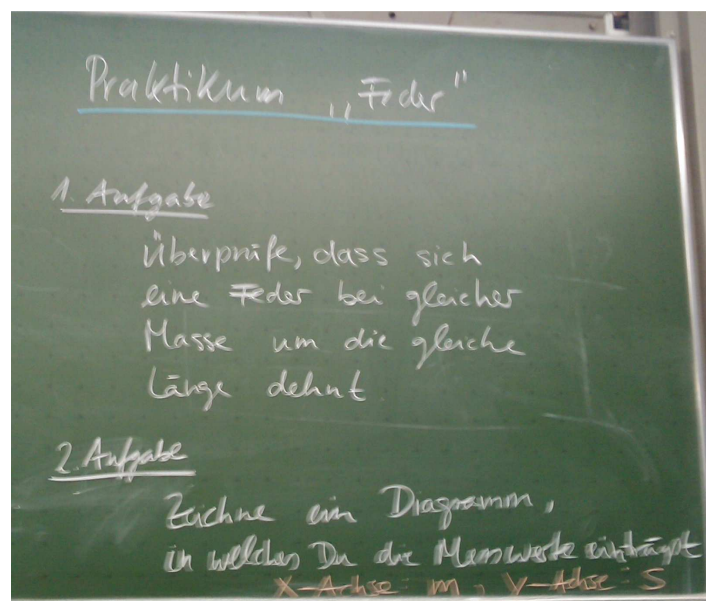 Praktikum „Feder"
1. Aufgabe
Überprüfe, dass sich
eine Feder bei gleicher
Masse um die gleiche
Länge dehnt
2. Aufgabe
Zeichne ein Diagramm,
in welches Du die Messwerte einträgst
X-Achse: m, Y-Achse: S